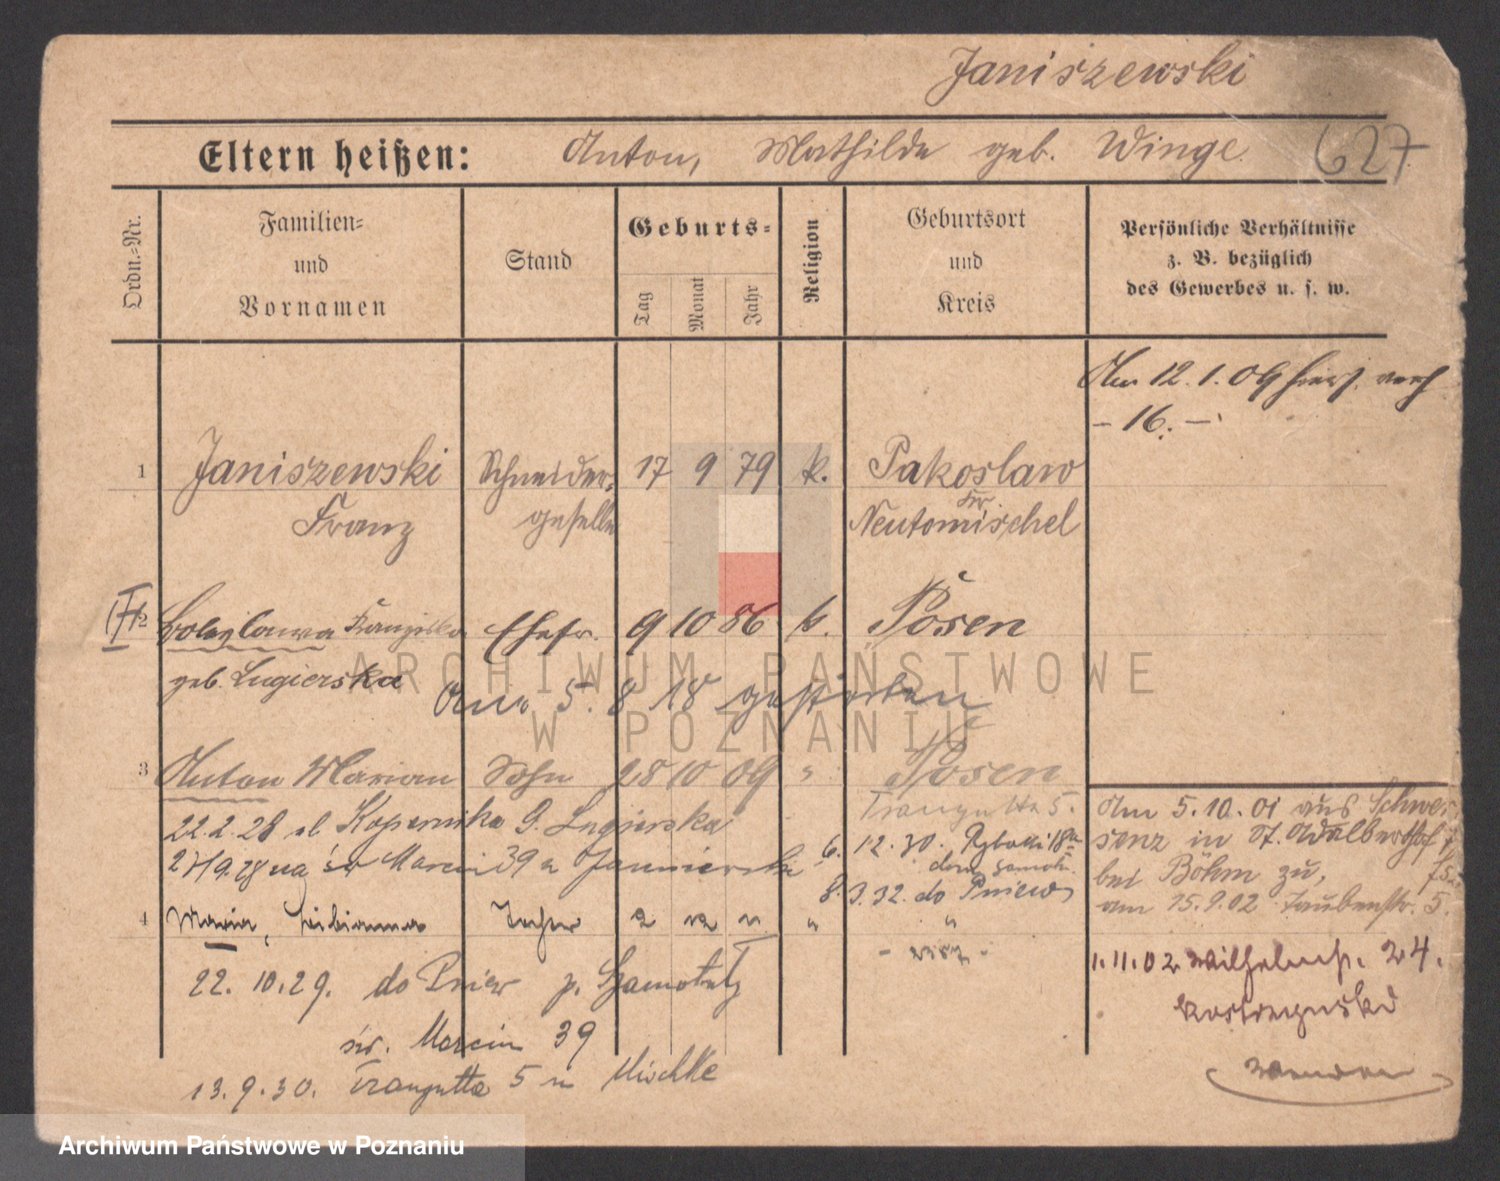 Janiszewski
Eltern heißen: Anton, Mathilde geb. Winge
627
Ordn.-Nr.
Familien-
und
Vornamen
Stand
Geburts-
Tag
Monat
Jahr
Religion
Geburtsort
und
Kreis
Persönliche Verhältnisse
z. B. bezüglich
des Gewerbes u. s. w.
Am 12.1.09
– 16. –
1 Janiszewski Schneider- 17 9 79 k. Pakoslaw
Franz geselle Kr. Neutomischel
2 Boleslawa Franziska Ehefr. 9 10 86 k. Posen
geb. Lugierska
Am 5. 8 18 gestorben
3 Anton Marian Sohn 28 10 09 " Posen
Traugutta 5.
22.2.28 ul. Kopernika 9. Lugierska
św Marcin 39
6. 12.30. Rybaki 18a
8. 3.32. do Pniew
4 Maria, Tochter " "
22. 10.29. do Pniew p. Szamotuły
św. Marcin 39
13.9.30. Traugutta 5 Mischke
Am 5.10.01 aus Schwer-
senz in St. Adalberthof
bei Böhm zu,
am 15.9.02 Taubenstr. 5.
1.11.02 Wilhelmstr. 24.
ARCHIWUM PAŃSTWOWE
W POZNANIU
Archiwum Państwowe w Poznaniu